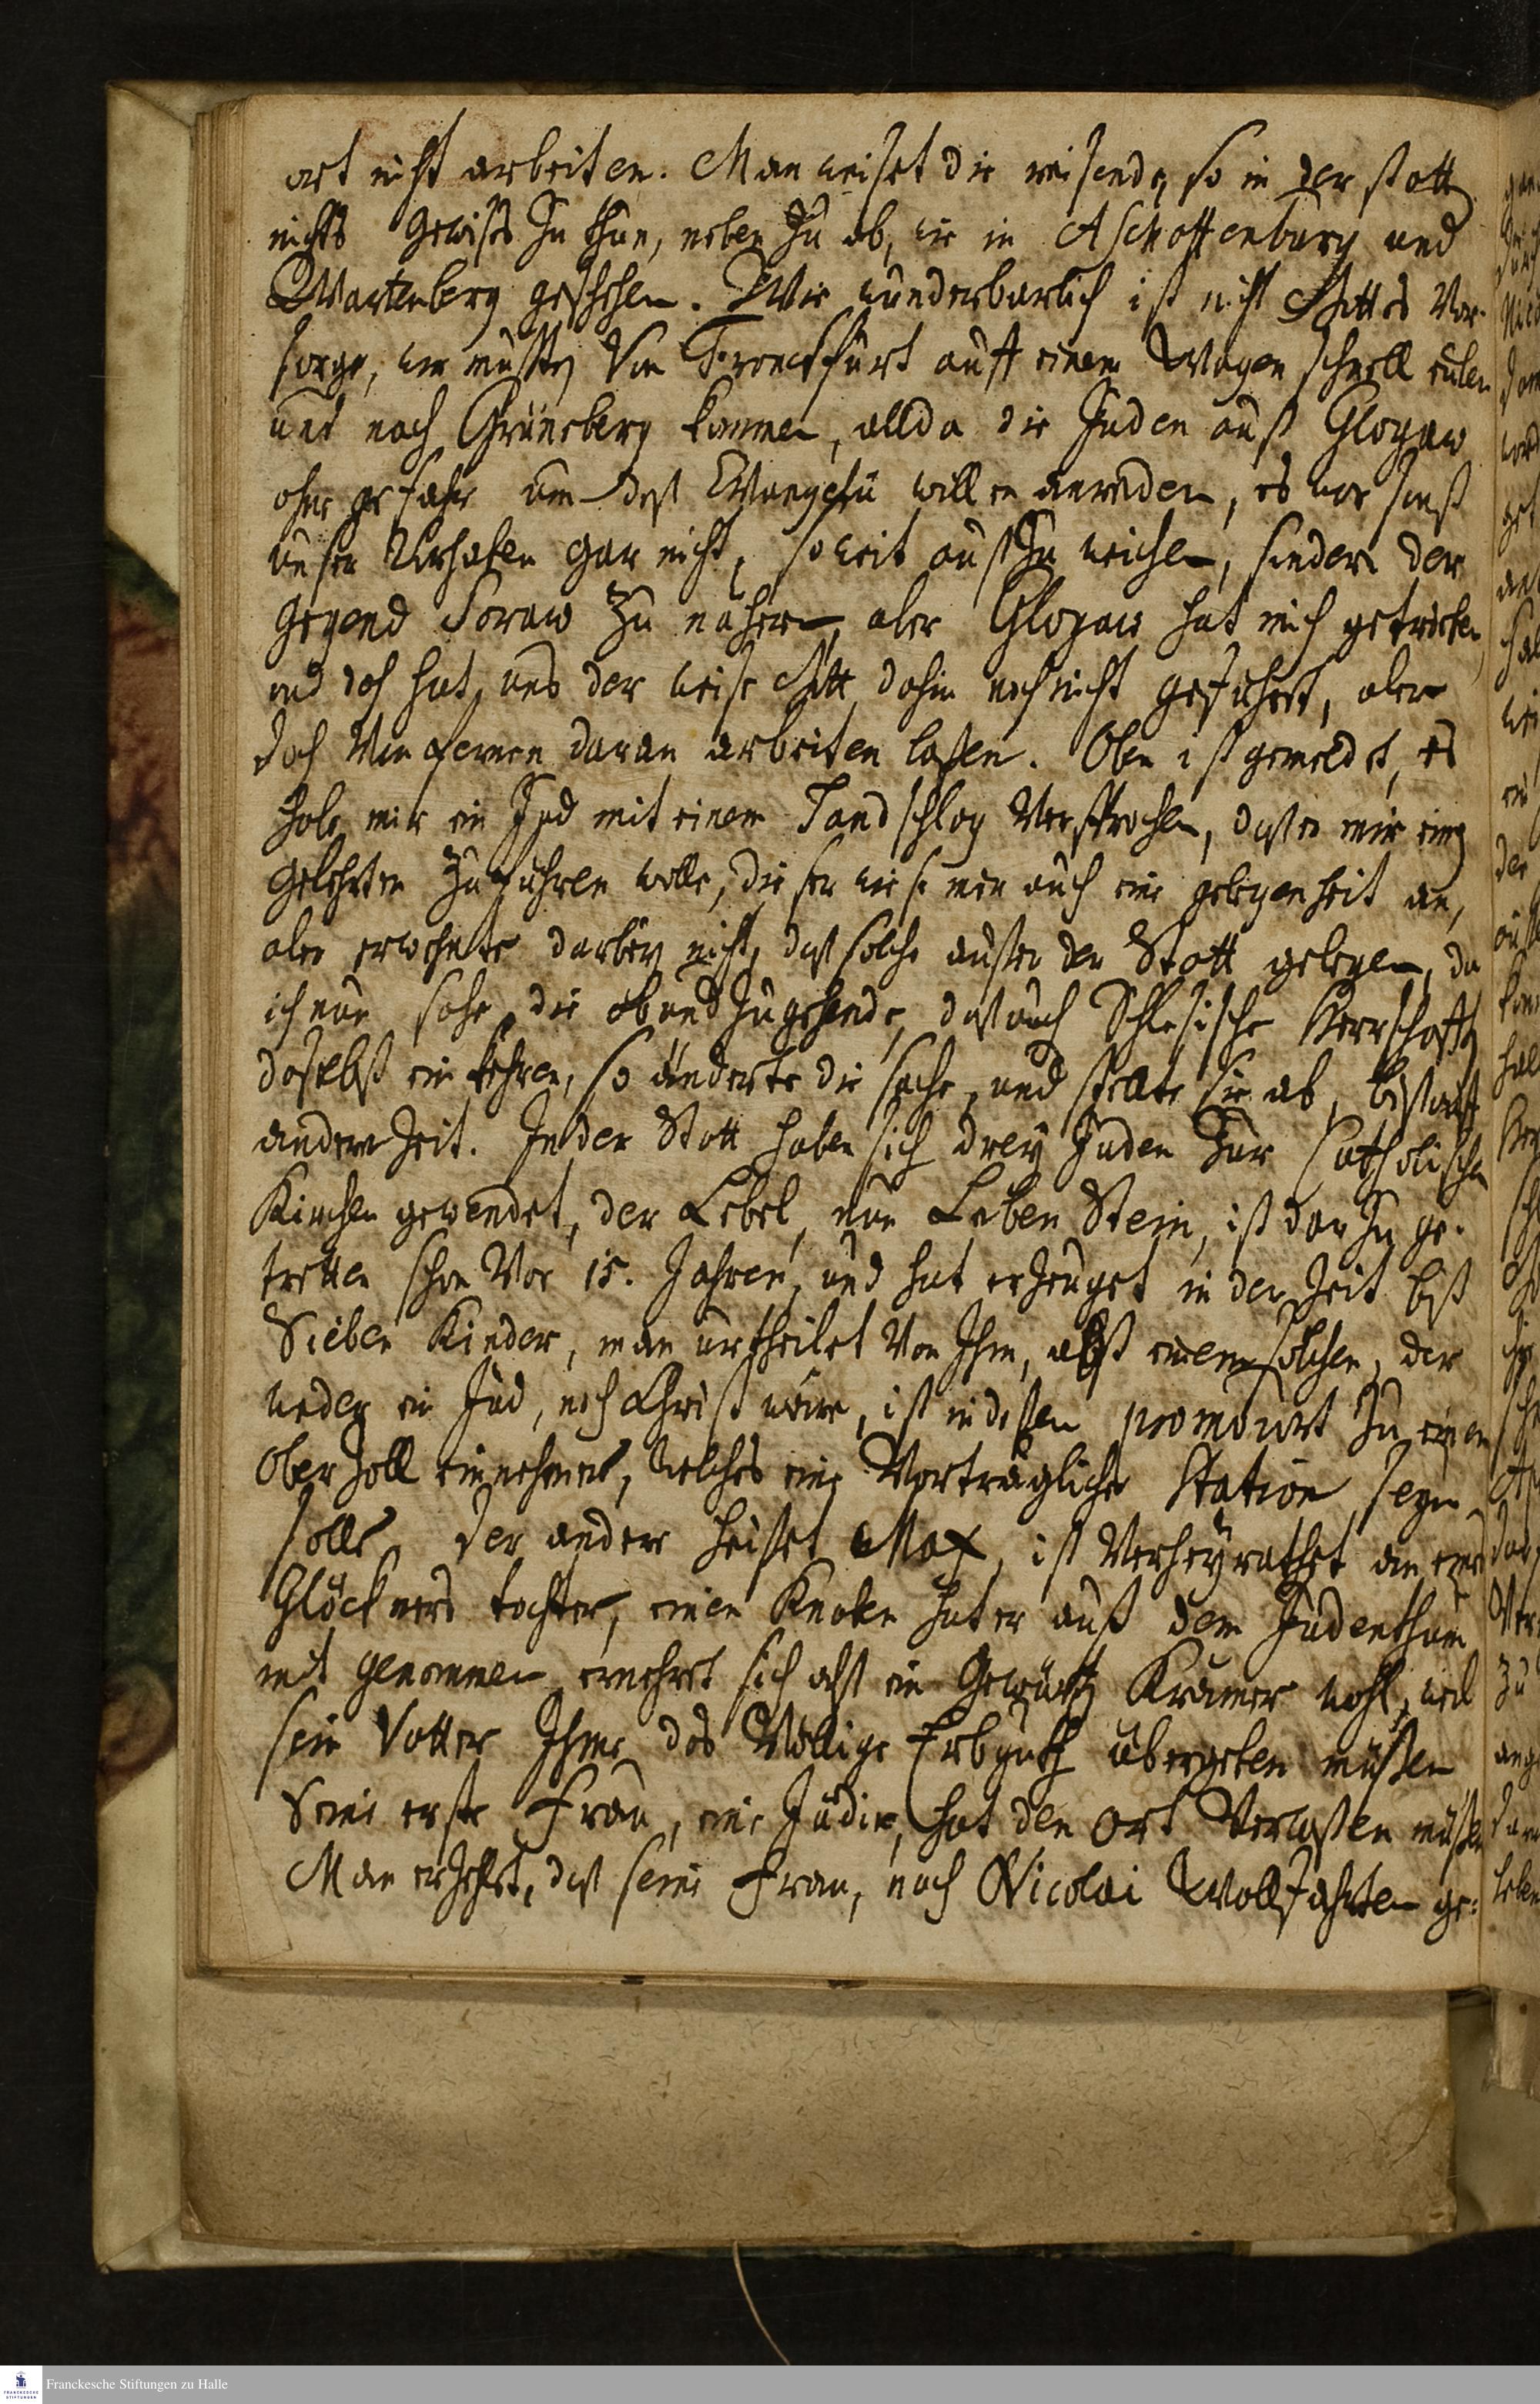 ort nicht arbeiten. Man weiset die reisende, so in der statt
nichts gewißes zu thun, neben zu ab, wie in Aschoffenburg und
Wartenberg geschehen. Wie wunderbarlich ist nicht Gottes Vor-
sorge, wir mußten Von Franckfurt auff einem Wagen schnell eulen
und nach Grüneberg kommen, allda die Juden auß Glogaw
ohne gefahr um deß Evangelii willen anreden, es war sonst
unser Vorhaben gar nicht, so weit auß zu weichen, sondern der
gegend Soraw zu nähern, aber Glogaw hat mich getrieben,
und doch hat, uns der weise Gott dahin noch nicht geführet, aber
doch Von fernen daran arbeiten laßen. Oben ist gemeldet, es
habe mir ein Jud mit einem Handschlag Versprochen, daß er mir einen
Gelehrten zuführen wolle, dieser wiese mir auch eine gelegenheit an,
aber erwehnte darbey nicht, daß solche außer der Statt gelegen, da
ich nun sahe die ab und zugehende, daß auch Schlesische Herrschafften
daselbst ein kehren, so änderte die sache, und stellte sie ab, biß auff
andere Zeit. In der Statt haben sich drey Juden zur Catholischen
Kirchen gewendet, der Lebel, nun Leben Stein, ist darzu ge-
tretten schon Vor 15. Jahren, und hat erzeuget in der Zeit biß
Sieben Kinder, man urtheilet Von Ihm, alß einem solchen, der
weder ein Jud, noch Christ wäre, ist indeßen promovirt zu einem
Ober Zoll einnehmer, welches eine Vorträgliche Station seyn
solle. der andere heißet Max, ist Verheyrathet an eines
Glöckners tochter, einen Knaben hat er auß dem Judenthum
mit genommen, ernehret sich alß ein Gewürtz Krämer wohl, weil
sein Vatter Ihme das Völlige Erbguth übergeben müßen
Seine erste Frau, eine Jüdin, hat den Ort Verlaßen müßen
Man erzehlet, daß seine Frau, nach Nicolai Wallfahrten ge-
Franckesche Stiftungen zu Halle